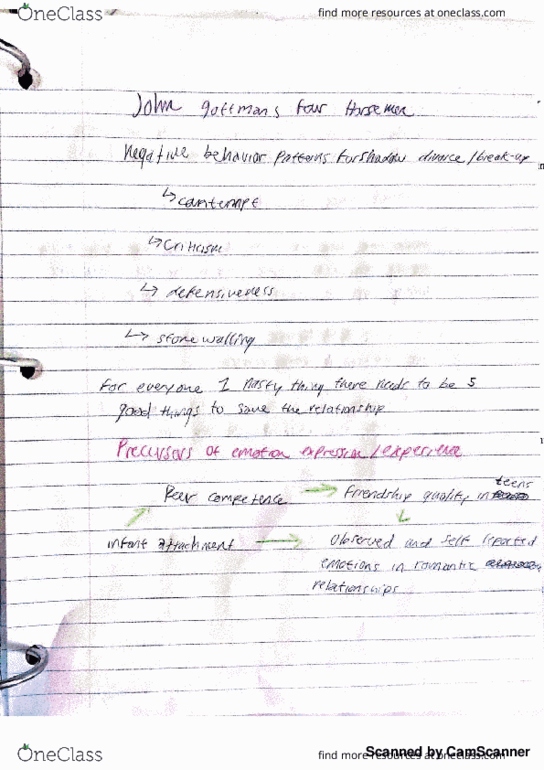 OneClass find more resources at oneclass.com
John gottmans four Horsemen
Negative behavior patterns forshadow divorce/break-up
↳ contempt
↳ Criticism
↳ defensiveness
↳ stonewalling
for everyone 1 nasty thing there needs to be 5
good things to save the relationship
Precursors of emotion expression/experience
teens
Peer competence → friendship quality in
infant attachment → observed and self reported
emotions in romantic
relationships
OneClass find more resources at oneclass.com
Scanned by CamScanner